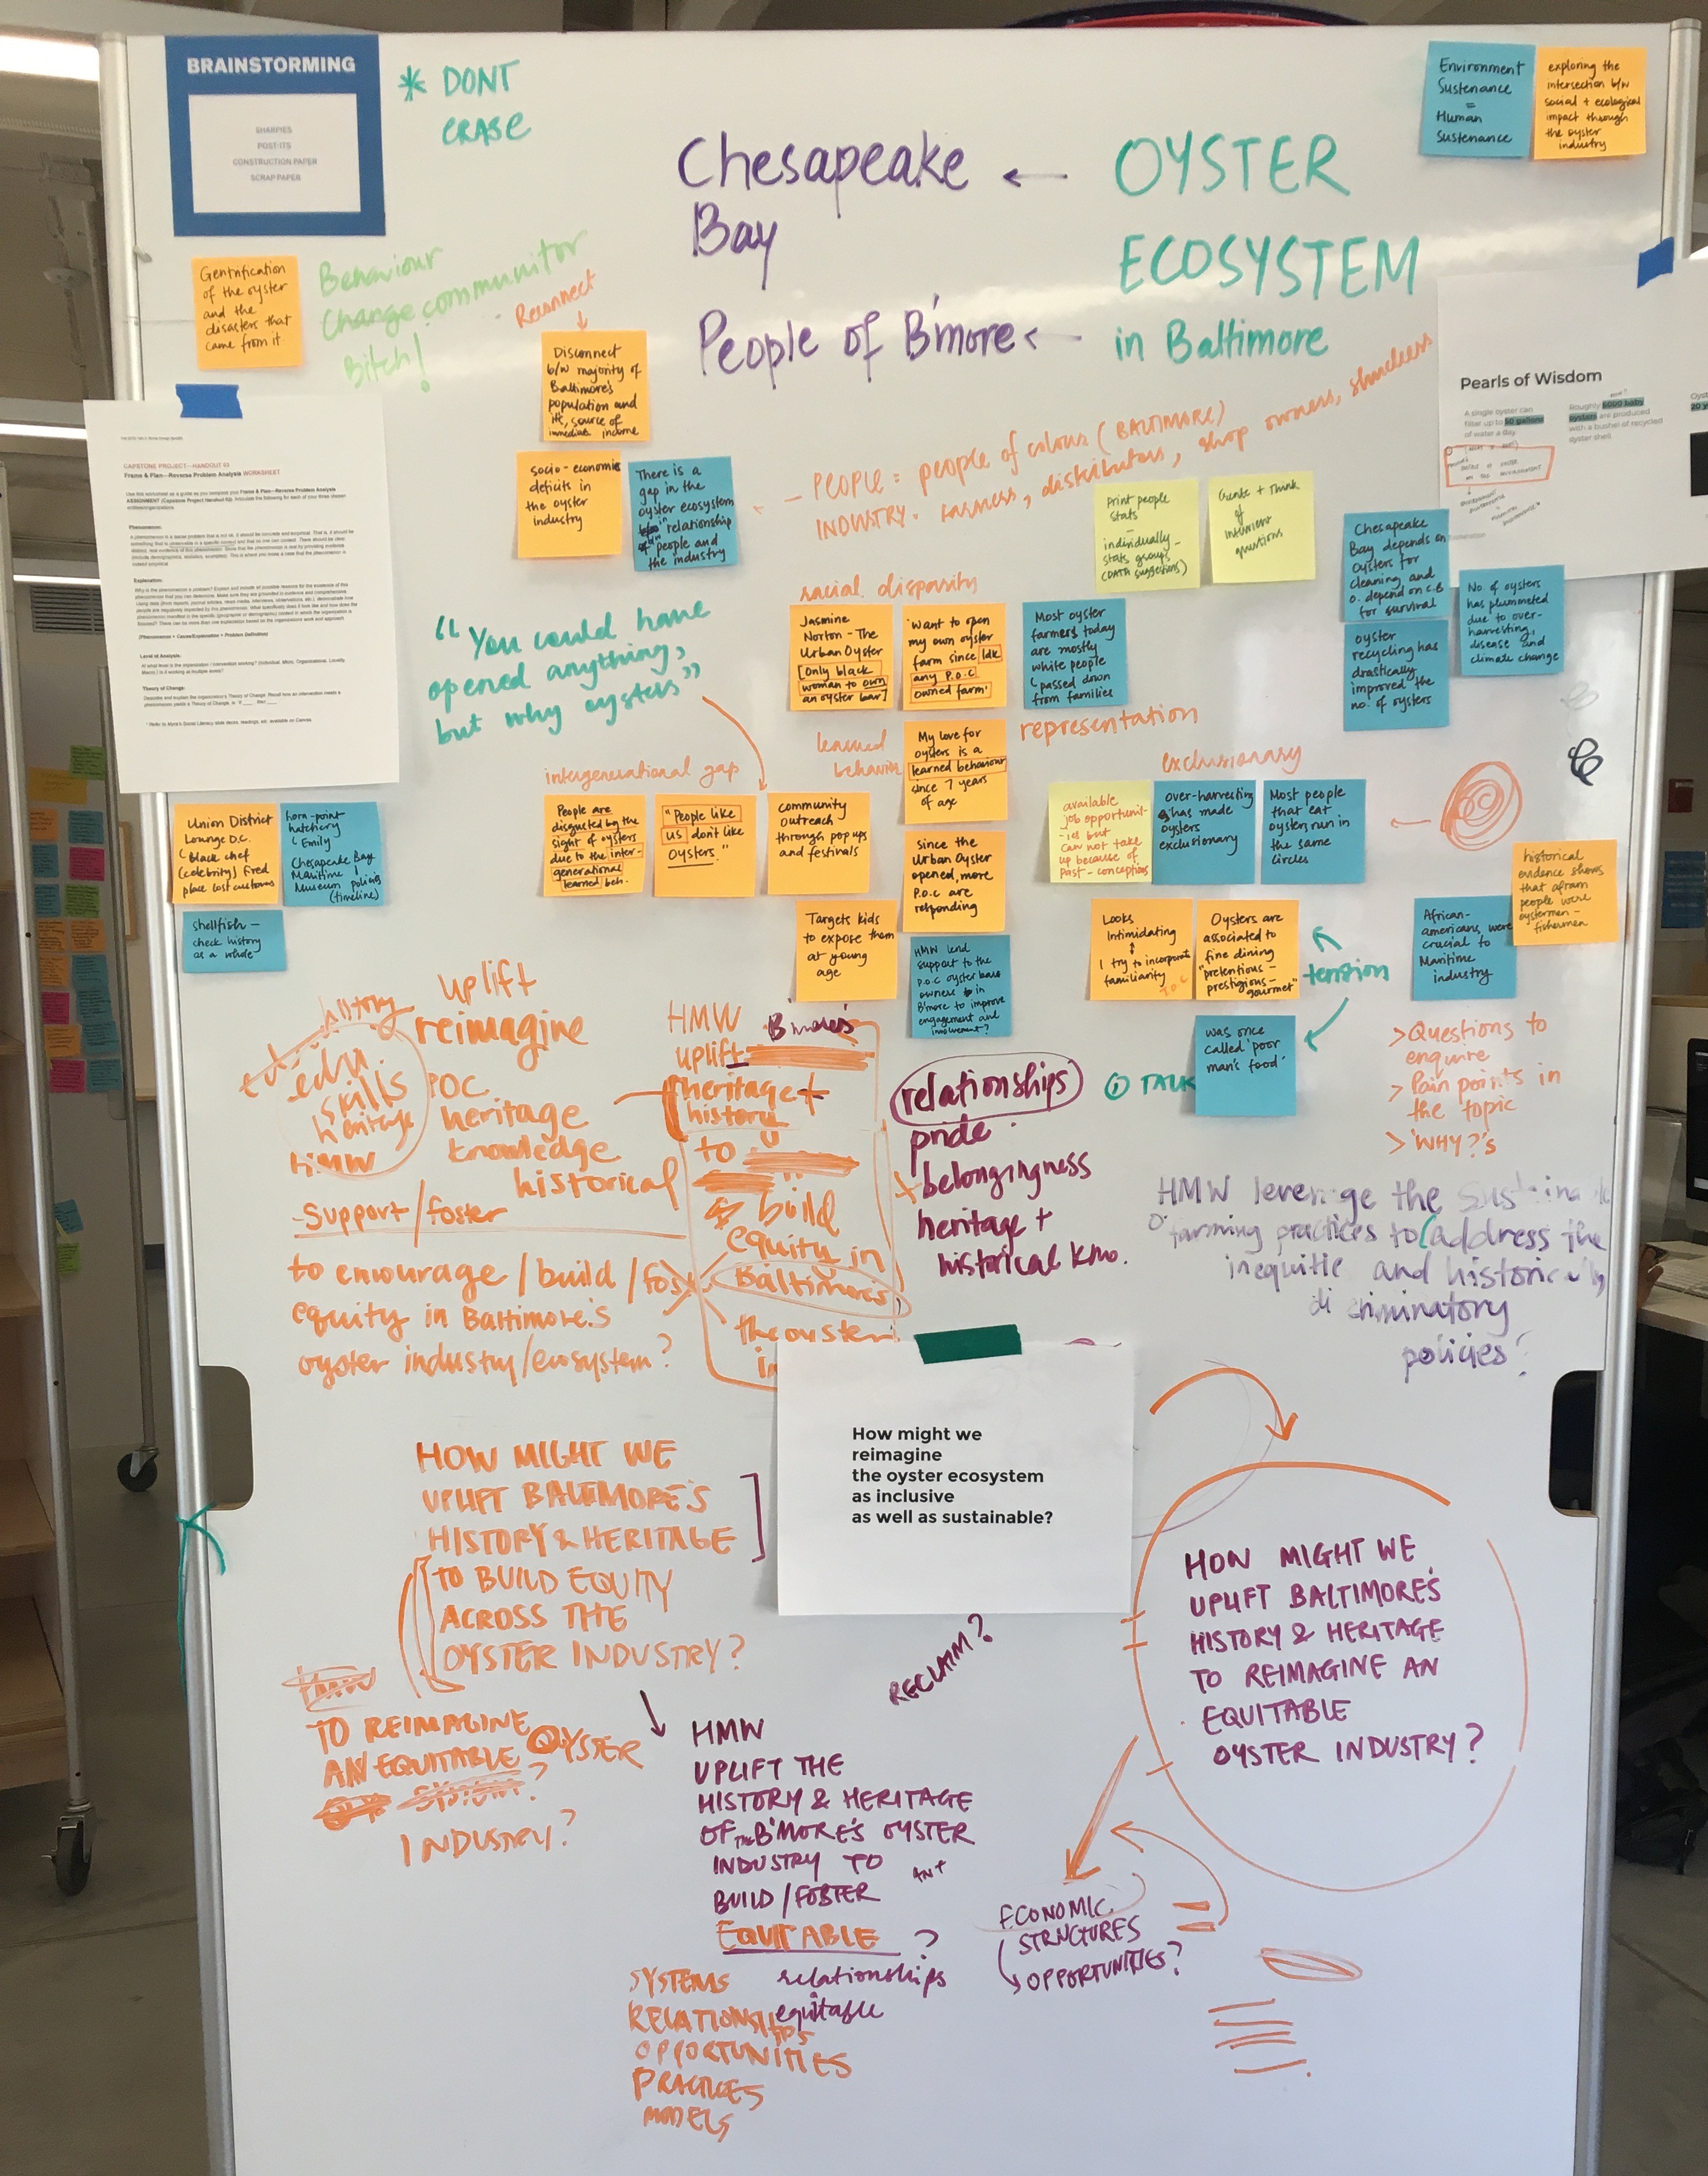 BRAINSTORMING
SHARPIES
POST-ITS
CONSTRUCTION PAPER
SCRAP PAPER
* DONT
ERASE
Chesapeake ← OYSTER
Bay
ECOSYSTEM
People of B'more ← in Baltimore
Environment
Sustenance
=
Human
Sustenance
exploring the
intersection b/w
social + ecological
impact through
the oyster
industry
Gentrification
of the oyster
and the
disasters that
came from it
Behaviour
Change communitor
Bitch!
Reconnect
Disconnect
b/w majority of
Baltimore's
population and
source of
immediate income
socio-economic
deficits in
the oyster
industry
There is a
gap in the
oyster ecosystem
in relationship
of people and
the industry
- PEOPLE: people of colour (BALTIMORE)
INDUSTRY. farmers, distributors, shop owners, shuckers
Pearls of Wisdom
A single oyster can
filter up to 50 gallons
of water a day.
Roughly 5000 baby
oysters are produced
with a bushel of recycled
oyster shell.
CAPSTONE PROJECT—HANDOUT 03
Frame & Plan—Reverse Problem Analysis WORKSHEET
Phenomenon:
Explanation:
(Phenomenon + Cause/Explanation = Problem Definition)
Level of Analysis:
Theory of Change:
Print people
stats
-
individually -
stats group
(DATA suggestions)
Create + Think
of
interview
questions
Chesapeake
Bay depends on
oysters for
cleaning and
o. depend on C.B
for survival
No. of oysters
has plummeted
due to over-
harvesting,
disease and
climate change
oyster
recycling has
drastically
improved the
no. of oysters
"You could have
opened anything,
but why oysters"
racial disparity
Jasmine
Norton - The
Urban Oyster
[Only black
woman to own
an oyster bar]
'Want to open
my own oyster
farm since Idk
any P.O.C
owned farm'
Most oyster
farmers today
are mostly
white people
(passed down
from families
representation
learned
behavior
My love for
oysters is a
learned behaviour
since 7 years
of age
intergenerational gap
People are
disgusted by the
sight of oysters
due to the inter-
generational
learned beh.
"People like
us don't like
oysters."
community
outreach
through pop ups
and festivals
Targets kids
to expose them
at young
age
since the
Urban Oyster
opened, more
P.o.c are
responding
HMW lend
support to the
P.O.C oyster bar
owners in
B'more to improve
engagement and
involvement?
exclusionary
available
job opportunit-
ies but
can not take
up because of
past-conceptions
over-harvesting
has made
oysters
exclusionary
Most people
that eat
oysters run in
the same
circles
Looks
Intimidating
I try to incorporate
familiarity
Oysters are
associated to
fine dining
"pretentious -
prestigious -
gourmet"
tension
was once
called 'poor
man's food'
African-
americans were
crucial to
Maritime
industry
historical
evidence shows
that afram
people were
oystermen -
fishermen
Union District
Lounge D.C.
(black chef
(celebrity) fired
place lost customers
horn-point
hatchery
Emily
Chesapeake Bay
Maritime
Museum policies
(timeline)
shellfish -
check history
as a whole
> Questions to
enquire
> Pain points in
the topic
> 'WHY?'s
history
edu.
skills
heritage
HMW
uplift
reimagine
POC
heritage
knowledge
historical
Support/foster
to encourage/build/fos
equity in Baltimore's
oyster industry/ecosystem?
HMW B'more's
uplift
heritage +
history
to
build
equity in
Baltimore's
the oyster
in
relationships
pride
belongingness
heritage +
historical kno.
① TALK
HMW leverage the sustainable
farming practices to address the
inequitie and historically
discriminatory
policies?
How might we
reimagine
the oyster ecosystem
as inclusive
as well as sustainable?
HOW MIGHT WE
UPLIFT BALTIMORE'S
HISTORY & HERITAGE
TO BUILD EQUITY
ACROSS THE
OYSTER INDUSTRY?
HMW
TO REIMAGINE
AN EQUITABLE OYSTER
SYSTEM?
INDUSTRY?
RECLAIM?
HMW
UPLIFT THE
HISTORY & HERITAGE
OF THE B'MORE'S OYSTER
INDUSTRY TO
BUILD/FOSTER
EQUITABLE ?
SYSTEMS
RELATIONSHIPS
OPPORTUNITIES
PRACTICES
MODELS
relationships
equitable
HOW MIGHT WE
UPLIFT BALTIMORE'S
HISTORY & HERITAGE
TO REIMAGINE AN
EQUITABLE
OYSTER INDUSTRY?
ECONOMIC
STRUCTURES
OPPORTUNITIES?